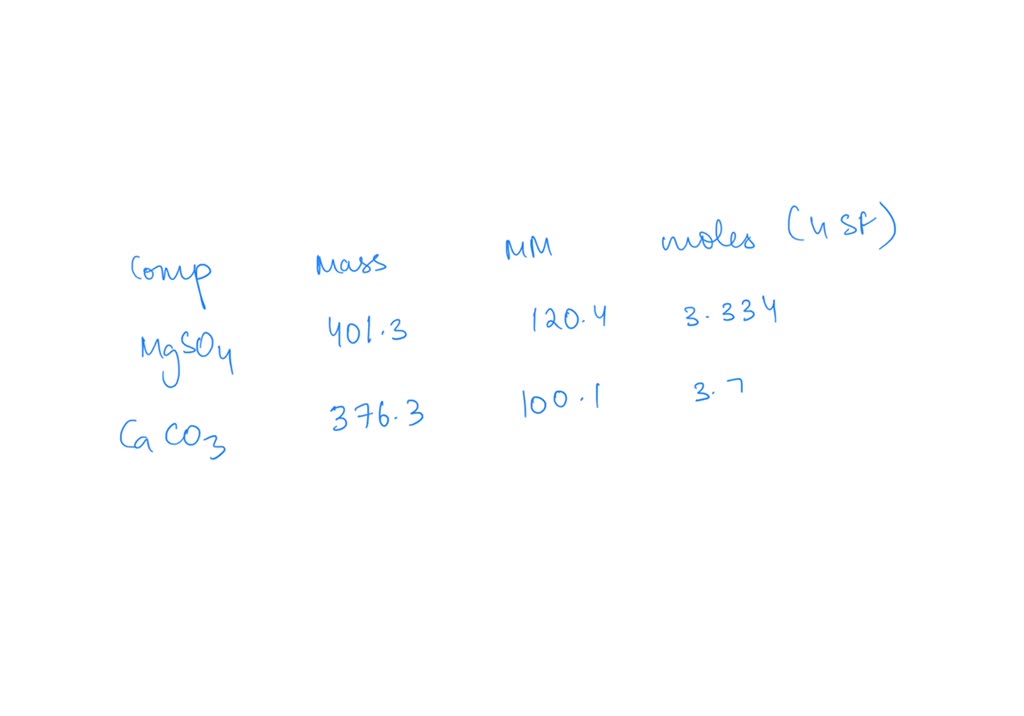 Comp Mass MM moles (4 SF)
MgSO4 401.3 120.4 3.334
CaCO3 376.3 100.1 3.7